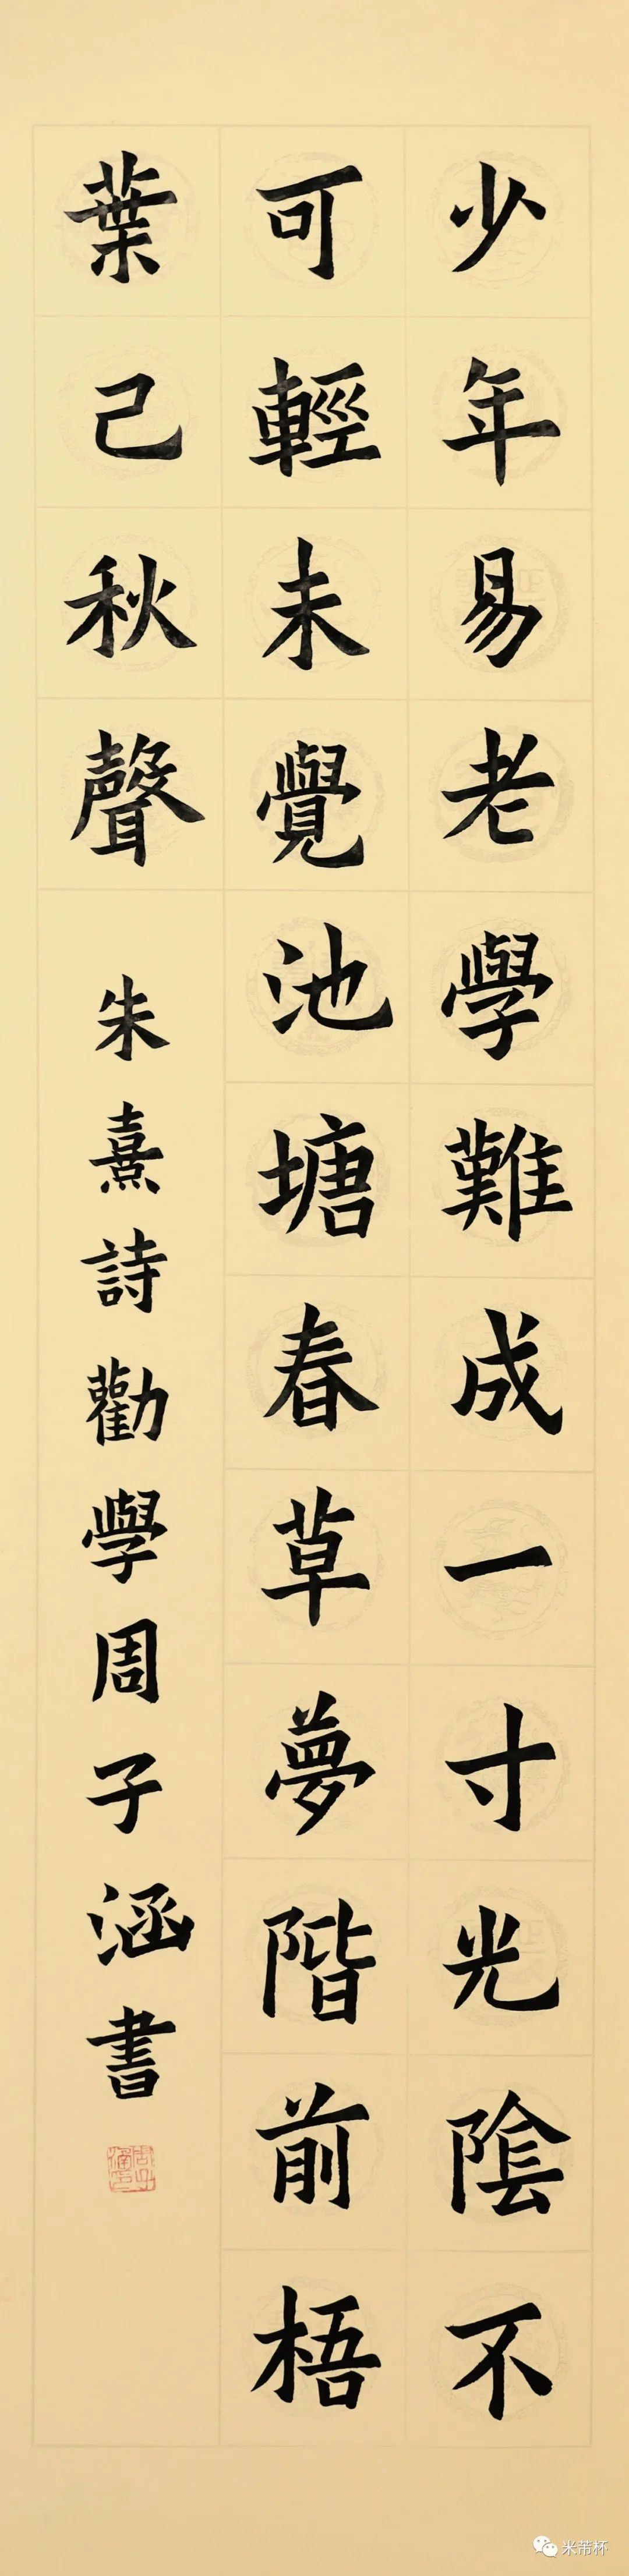 少年易老學難成一寸光陰不
可輕未覺池塘春草夢階前梧
葉己秋聲
朱熹詩勸學周子涵書
米芾杯